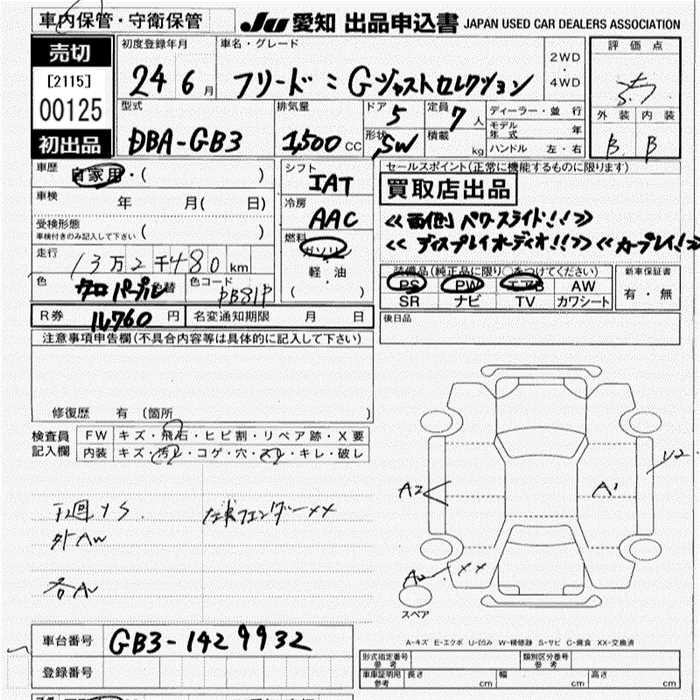 車内保管・守衛保管
JU 愛知 出品申込書 JAPAN USED CAR DEALERS ASSOCIATION
売切
[2115]
00125
初出品
初度登録年月
24 6 月
車名・グレード
フリード : Gジャストセレクション
2WD
・
4WD
評価点
外装 内装
B B
型式
DBA-GB3
排気量
1,500 CC
ドア 5
形状 SW
定員 7 人
積載 kg
ディーラー・並行
モデル年式 年
ハンドル 左・右
車歴
自家用・( )
車検
年 月( 日)
受検形態
車検付きのみ記入して下さい ( )
走行
13万2千480 km
色
クロパープル 色替
色コード
PB81P
シフト
IAT
冷房
AAC
燃料
ガソリン
軽・油
( )
セールスポイント(正常に機能するものに限ります)
買取店出品
<<両側パワースライド!!>>
<<ディスプレイオーディオ!!>> <<カープレイ!>>
装備品(純正品に限り○をつけてください)
PS PW エアB AW
SR ナビ TV カワシート
新車保証書
有・無
R券
14760 円
名変通知期限 月 日
後日品
注意事項申告欄(不具合内容等は具体的に記入して下さい)
修復歴 有 (箇所 )
検査員
記入欄
FW キズ・飛石・ヒビ割・リペア跡・X要
内装 キズ・汚レ・コゲ・穴・スレ・キレ・破レ
左フェンダーXX
外AW
各A
A2
A1
U2
XX
スペア
A-キズ E-エクボ U-凹み W-補修跡 S-サビ C-腐食 XX-交換済
車台番号
GB3-1429932
登録番号
型式指定番号
参考
類別区分番号
参考
車庫証明用
参考
長さ cm 幅 cm 高さ cm